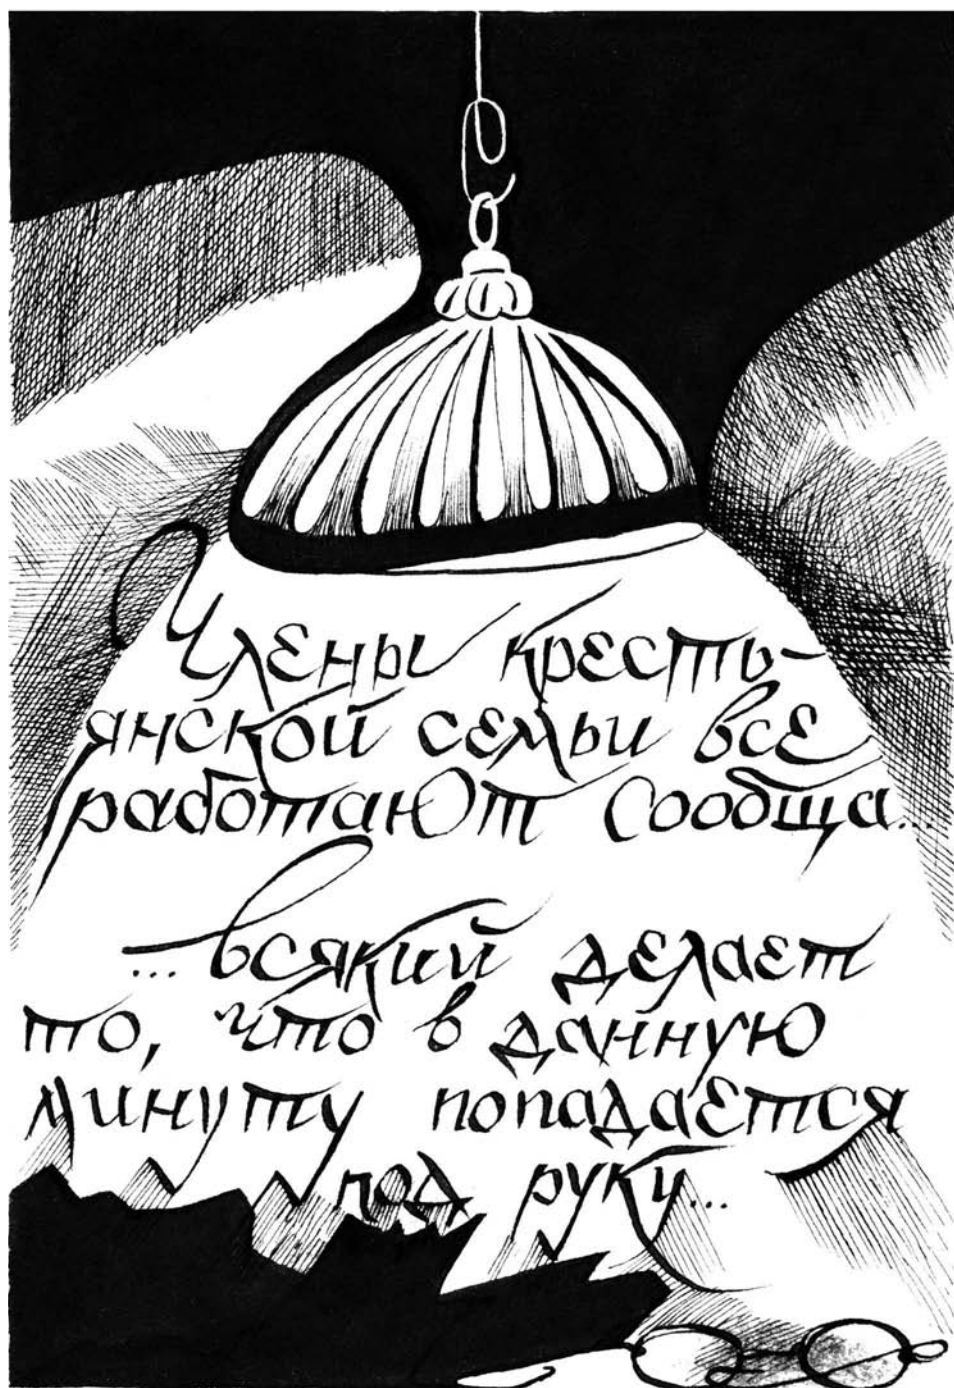 Члены кресть-
янской семьи все
работают сообща...
...всякий делает
то, что в данную
минуту попадается
под руку...